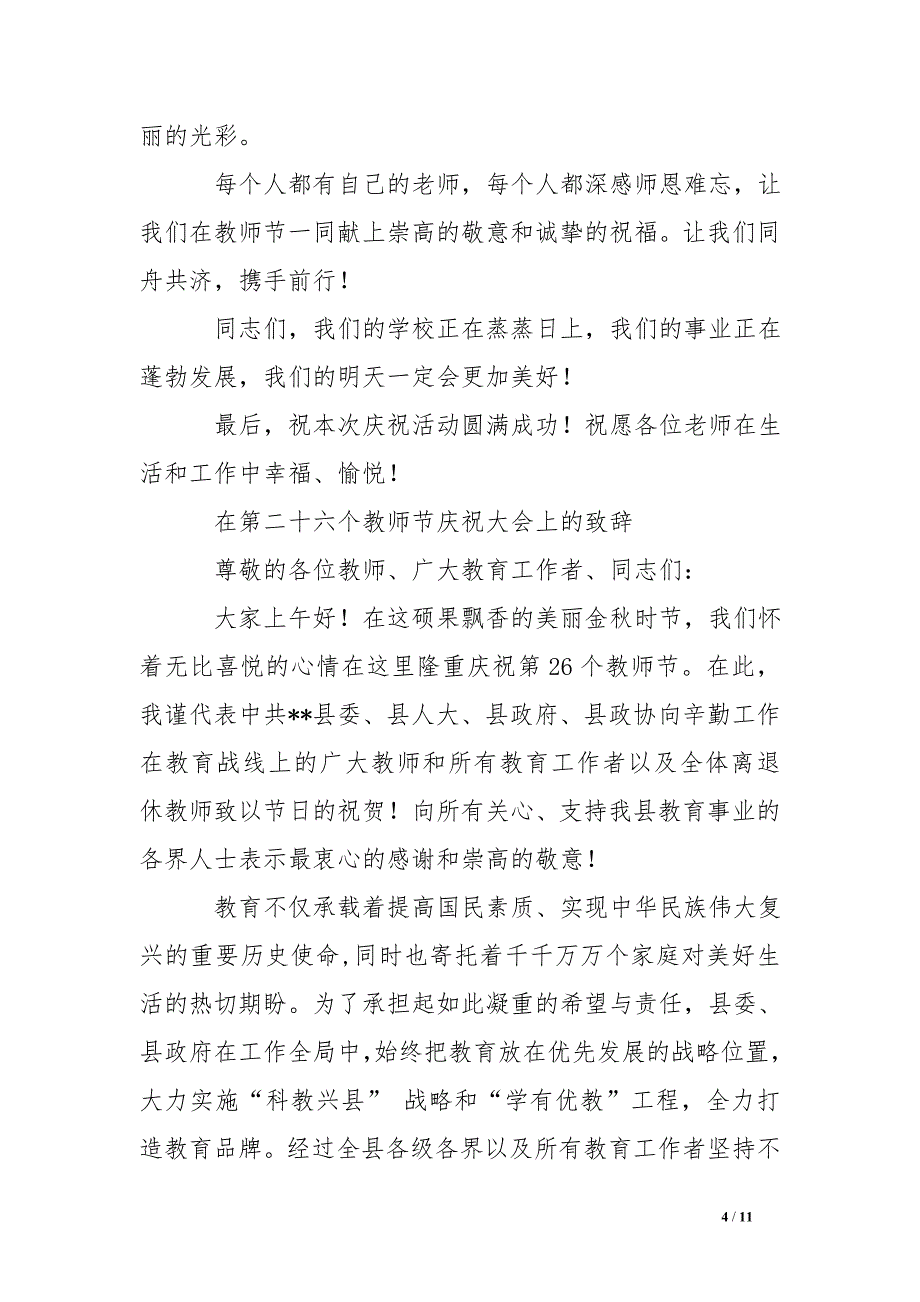 丽的光彩。
每个人都有自己的老师，每个人都深感师恩难忘，让
我们在教师节一同献上崇高的敬意和诚挚的祝福。让我们同
舟共济，携手前行！
同志们，我们的学校正在蒸蒸日上，我们的事业正在
蓬勃发展，我们的明天一定会更加美好！
最后，祝本次庆祝活动圆满成功！祝愿各位老师在生
活和工作中幸福、愉悦！
在第二十六个教师节庆祝大会上的致辞
尊敬的各位教师、广大教育工作者、同志们：
大家上午好！在这硕果飘香的美丽金秋时节，我们怀
着无比喜悦的心情在这里隆重庆祝第 26 个教师节。在此，
我谨代表中共**县委、县人大、县政府、县政协向辛勤工作
在教育战线上的广大教师和所有教育工作者以及全体离退
休教师致以节日的祝贺！向所有关心、支持我县教育事业的
各界人士表示最衷心的感谢和崇高的敬意！
教育不仅承载着提高国民素质、实现中华民族伟大复
兴的重要历史使命,同时也寄托着千千万万个家庭对美好生
活的热切期盼。为了承担起如此凝重的希望与责任，县委、
县政府在工作全局中,始终把教育放在优先发展的战略位置，
大力实施“科教兴县” 战略和“学有优教”工程，全力打
造教育品牌。经过全县各级各界以及所有教育工作者坚持不
4 / 11